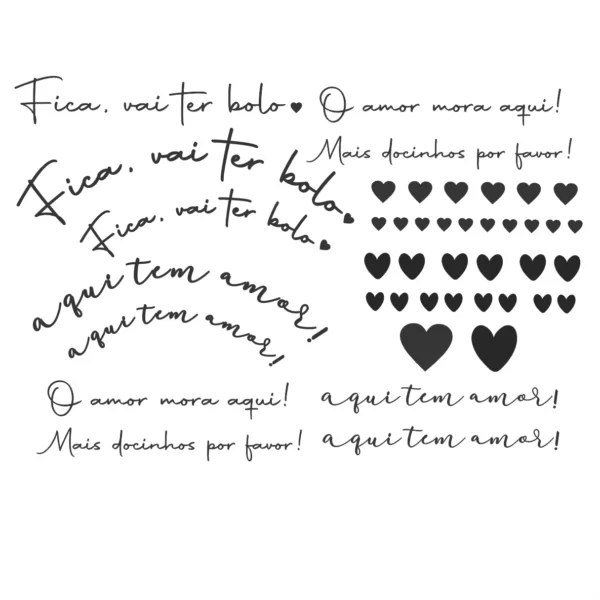 Fica, vai ter bolo
O amor mora aqui!
Mais docinhos por favor!
Fica, vai ter bolo
Fica, vai ter bolo
aqui tem amor!
aqui tem amor!
O amor mora aqui!
aqui tem amor!
Mais docinhos por favor!
aqui tem amor!